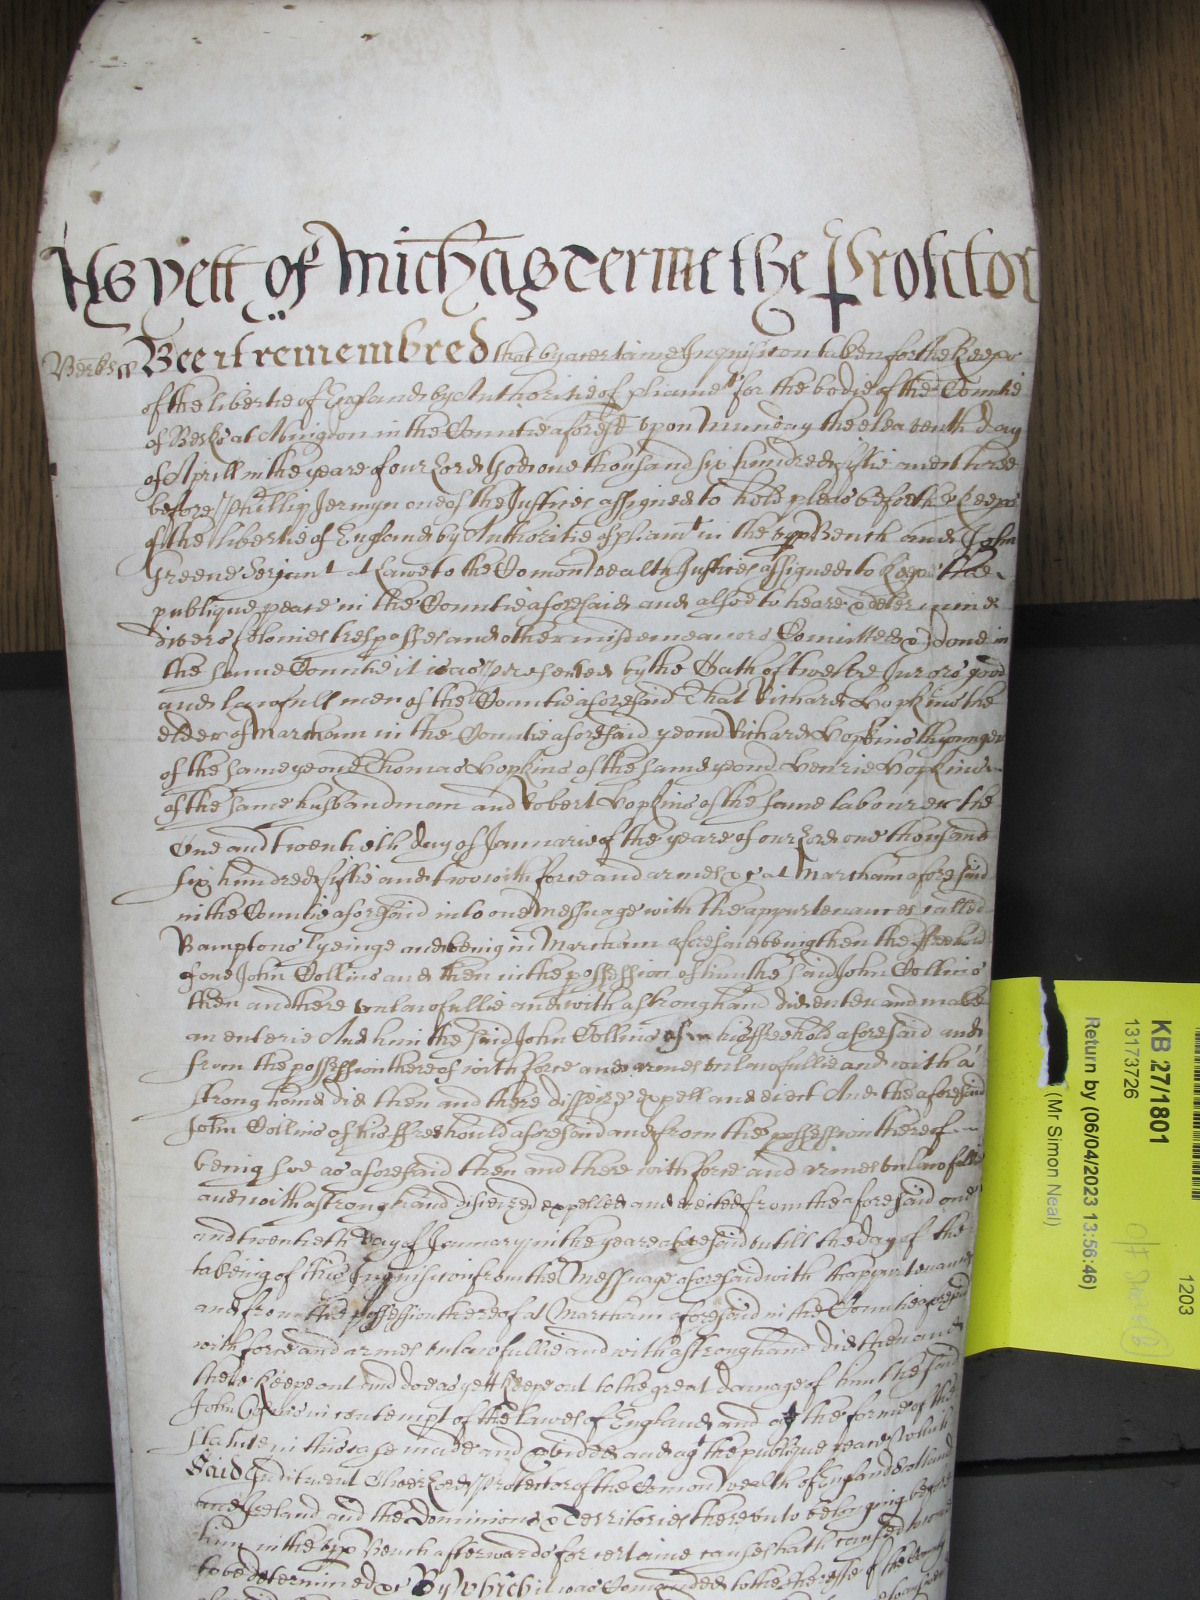 As yett of Michās Terme the Protector
Berks ss Bee it remembred that by a certaine Inquisicon taken for the Keeps
of the libertie of England by Authoritie of pliamt for the bodie of the Countie
of Berks at Abingdon in the Countie aforesd vpon Munday the eleaventh day
of Aprill in the yeare of our Lord God one thousand six hundred fiftie and three
before Phillip Jermyn one of the Justices assigned to hold pleas before the Keeps
of the libertie of England by Authoritie of pliamt in the vpp Bench and John
Greene Serjant at Lawe to the Comonwealth Justices assigned to keepe the
publique peace in the Countie aforesaid and alsoe to heare & determine
divers felonies trespasses and other misdemeanors Comitted & done in
the same Countie it was presented by the Oath of twelve Jurors good
and lawfull men of the Countie aforesaid That Richard Hopkins the
elder of Marcham in the Countie aforesaid yeom Richard Hopkins the yonger
of the same yeom Thomas Hopkins of the same yeom Henrie Hopkins
of the same husbandman and Robert Hopkins of the same labourer the
One and twentieth day of Januarie of the yeare of our Lord one thousand
six hundred fiftie and two with force and armes &c at Marcham aforesaid
in the Countie aforesaid into one Messuage with the appurtenances called
Bamptons lyeinge and being in Marcham aforesaid being then the ffreehold
of one John Collins and then in the possession of him the said John Collins
then and there vnlawfullie and with a strong hand did enter and make
an enterie And him the said John Collins of his ffreehold aforesaid and
from the possession thereof with force and armes vnlawfullie and with a
strong hand did then and there disseize expell and eject And the aforesaid
John Collins of his ffreehould aforesaid and from the possession thereof
being soe as aforesaid then and there with force and armes vnlawfullie
and with a strong hand disseized expelled and ejected from the aforesaid one
and twentieth day of January in the yeare aforesaid vntill the day of the
takeing of this Inquisicon from the Messuage aforesaid with thappurtenances
and from the possession thereof at Marcham aforesaid in the Countie aforesaid
with force and armes vnlawfullie and with a strong hand did then and
there keepe out and doe as yett keepe out to the great damage of him the said
John Collins in contempt of the lawes of England and agt the forme of the
statute in this case made and pvided and agt the publique peace
Said Inditement Oliver Lord Protector of the Comonwealth of England Scotland
and Ireland and the Dominions & Territories therevnto belonging before
him in the vpp Bench afterwards for certaine causes hath caused to come
to be determined &c By which it was Comanded to the Sheriffe of the County
KB 27/1801
13173726
Return by (06/04/2023 13:56:46)
(Mr Simon Neal)
1203